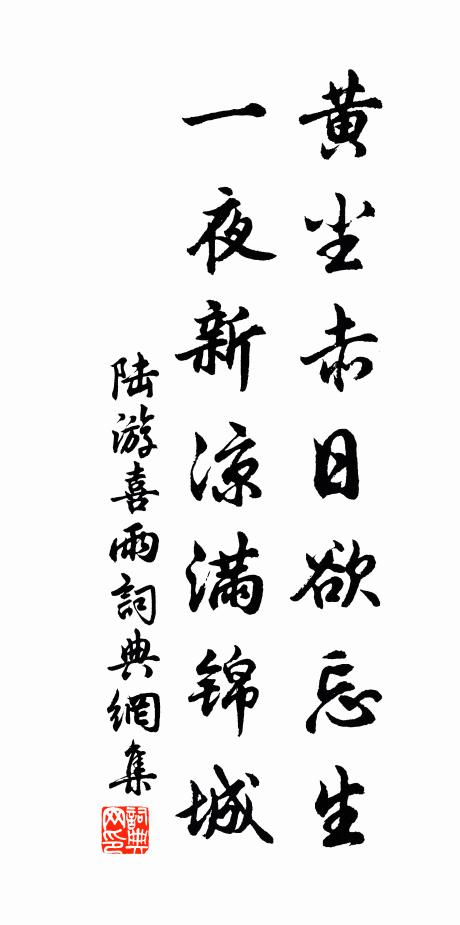 黄尘赤日欲忘生
一夜新凉满锦城
陆游喜雨詞典網集
詞典网印